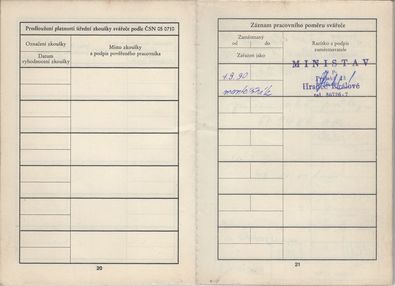 Prodloužení platnosti úřední zkoušky svářeče podle ČSN 05 0710
Označení zkoušky
Datum
vyhodnocení zkoušky
Místo zkoušky
a podpis pověřeného pracovníka
20
Záznam pracovního poměru svářeče
Zaměstnaný
od do
Zařazen jako
Razítko a podpis
zaměstnavatele
1.9.90
MINISTAV
Hradec Králové
21